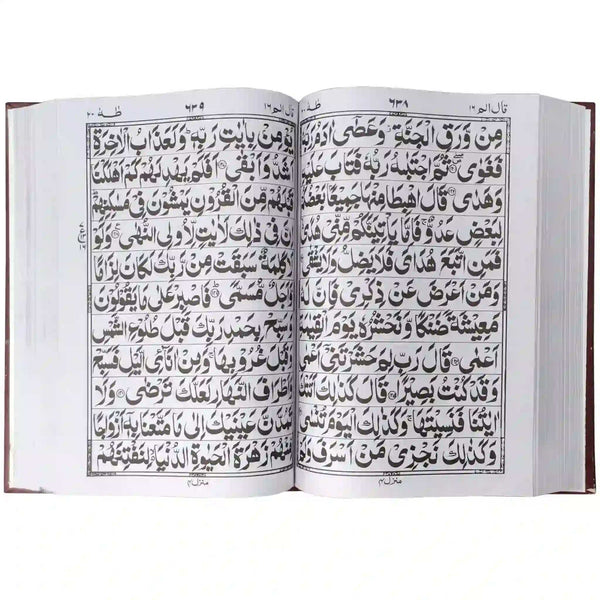 قال الم ١٦ ٦٣٨ طٰهٰ ٢٠
مِنْ وَّرَقِ الْجَنَّةِ ؗ وَعَصٰۤى
فَغَوٰى ۖ﴿١٢١﴾ ثُمَّ اجْتَبٰىهُ رَبُّهٗ فَتَابَ
وَهَدٰى ﴿١٢٢﴾ قَالَ اهْبِطَا مِنْهَا جَمِيْعًۢا
لِبَعْضٍ عَدُوٌّ ۚ فَاِمَّا يَاْتِيَنَّكُمْ مِّنِّيْ
فَمَنِ اتَّبَعَ هُدَايَ فَلَا يَضِلُّ
وَمَنْ اَعْرَضَ عَنْ ذِكْرِيْ فَاِنَّ لَهٗ
مَعِيْشَةً ضَنْكًا وَّنَحْشُرُهٗ يَوْمَ الْقِيٰمَةِ
اَعْمٰى ﴿١٢٤﴾ قَالَ رَبِّ لِمَ حَشَرْتَنِيْۤ اَعْمٰى
وَقَدْ كُنْتُ بَصِيْرًا ﴿١٢٥﴾ قَالَ كَذٰلِكَ اَتَتْكَ
اٰيٰتُنَا فَنَسِيْتَهَا ۚ وَكَذٰلِكَ الْيَوْمَ تُنْسٰى
وَكَذٰلِكَ نَجْزِيْ مَنْ اَسْرَفَ
منزل ٤
قال الم ١٦ ٦٣٩ طٰهٰ ٢٠
يُؤْمِنْۢ بِاٰيٰتِ رَبِّهٖ ؕ وَلَعَذَابُ الْاٰخِرَةِ
اَشَدُّ وَاَبْقٰى ﴿١٢٧﴾ اَفَلَمْ يَهْدِ لَهُمْ كَمْ اَهْلَكْنَا
قَبْلَهُمْ مِّنَ الْقُرُوْنِ يَمْشُوْنَ فِيْ مَسٰكِنِهِمْ ؕ
اِنَّ فِيْ ذٰلِكَ لَاٰيٰتٍ لِّاُولِي النُّهٰى ﴿١٢٨﴾ وَلَوْلَا
كَلِمَةٌ سَبَقَتْ مِنْ رَّبِّكَ لَكَانَ لِزَامًا
وَّاَجَلٌ مُّسَمًّى ﴿١٢٩﴾ فَاصْبِرْ عَلٰى مَا يَقُوْلُوْنَ
وَسَبِّحْ بِحَمْدِ رَبِّكَ قَبْلَ طُلُوْعِ الشَّمْسِ
وَقَبْلَ غُرُوْبِهَا ۚ وَمِنْ اٰنَآئِ الَّيْلِ فَسَبِّحْ
وَاَطْرَافَ النَّهَارِ لَعَلَّكَ تَرْضٰى ﴿١٣٠﴾ وَلَا
تَمُدَّنَّ عَيْنَيْكَ اِلٰى مَا مَتَّعْنَا بِهٖۤ اَزْوَاجًا
مِّنْهُمْ زَهْرَةَ الْحَيٰوةِ الدُّنْيَا ۙ لِنَفْتِنَهُمْ
منزل ٤